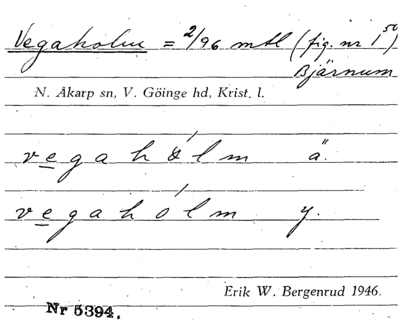 Vegaholm = 2/96 mtl (fig. nr 1⁵⁰)
Bjärnum
N. Åkarp sn, V. Göinge hd, Krist. l.
v e g a h ó l m ä.
v e g a h ó l m y.
Erik W. Bergenrud 1946.
Nr 5394.